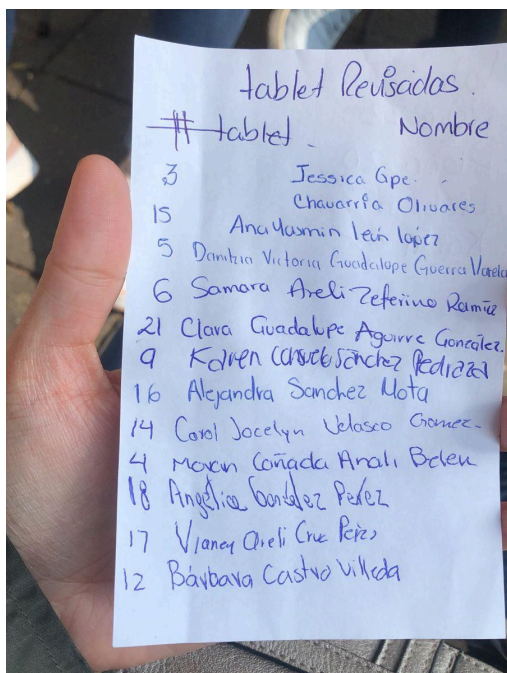 tablet Revisadas.
# tablet. Nombre
3 Jessica Gpe.
Chavarría Olivares
15 Ana Yasmin león lópez
5 Danitzia Victoria Guadalupe Guerra Varela
6 Samara Areli Zeferino Ramíre
21 Clara Guadalupe Aguirre González.
9 Karen Consuelo Sánchez Pedraza
16 Alejandra Sanchez Mota
14 Carol Jocelyn Velasco Gomez.
4 Cañada Anali Belen
18 Angélica González Pérez
17 Vianey Areli Cruz Pérez
12 Bárbara Castro Villeda